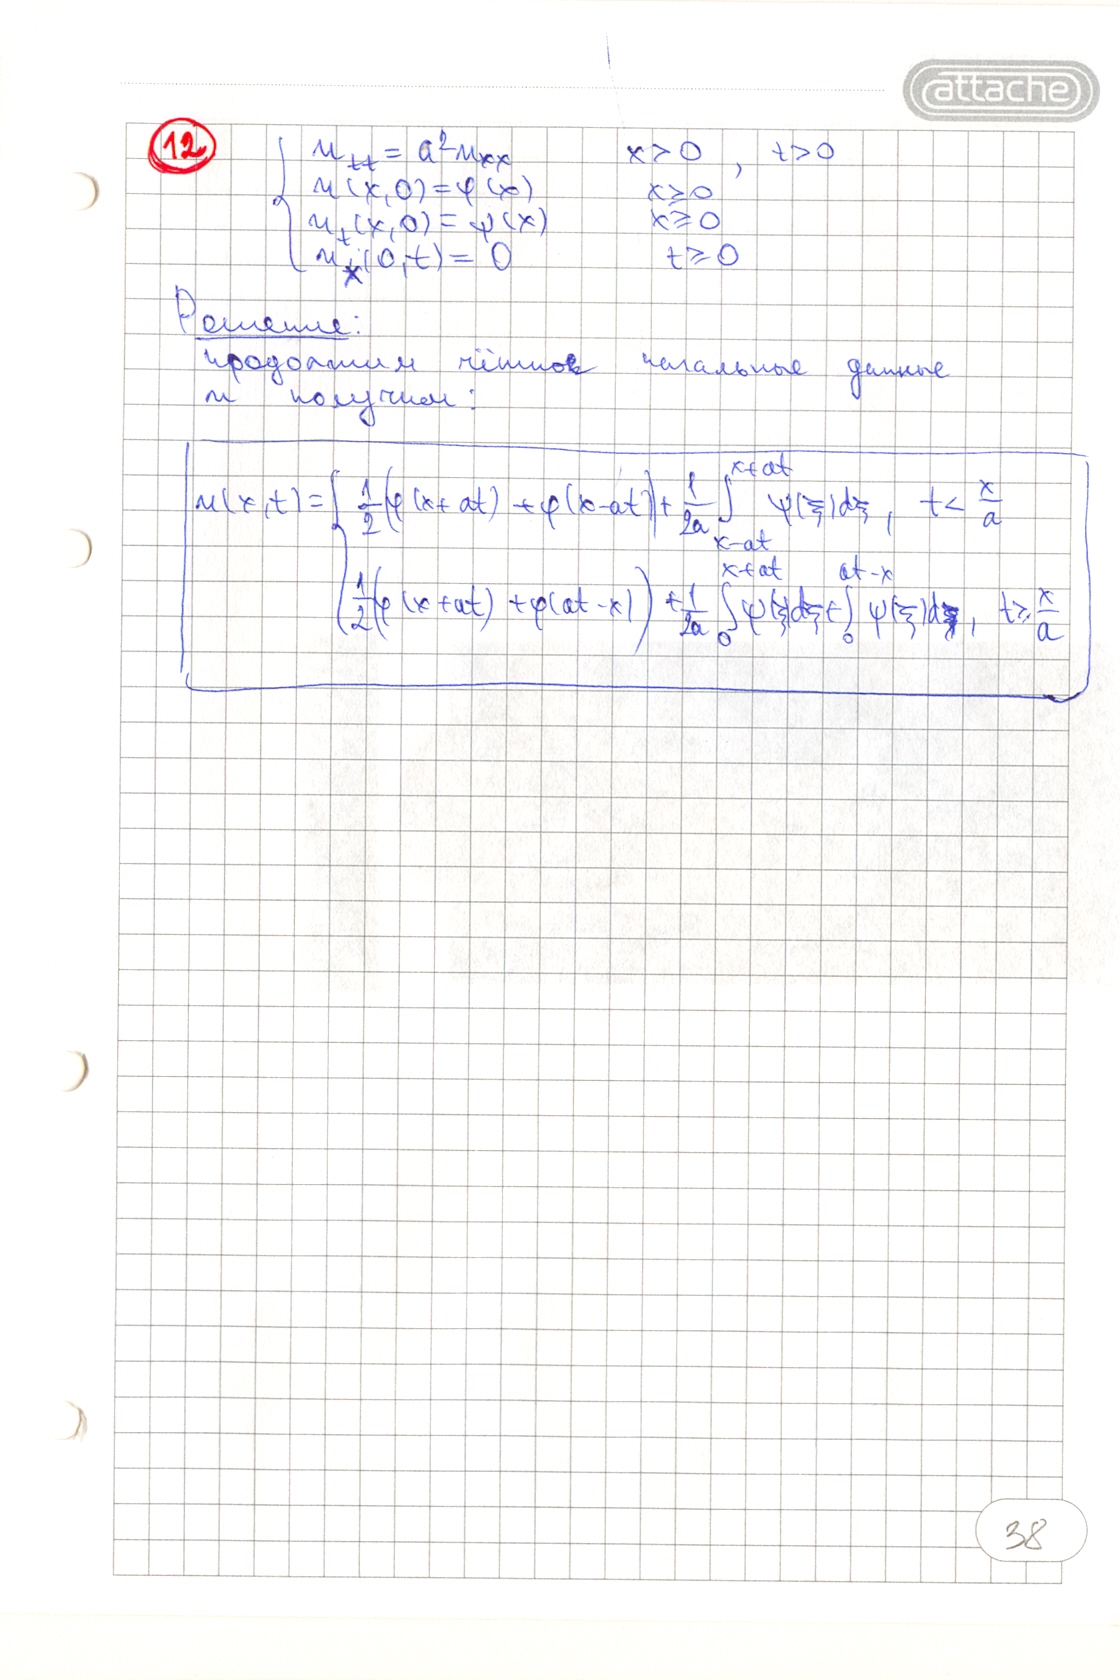 attache
12
u_tt = a²u_xx x > 0 , t > 0
u(x,0) = φ(x) x ≥ 0
u_t(x,0) = ψ(x) x ≥ 0
u_x(0,t) = 0 t ≥ 0
Решение:
продолжим чётно начальные данные
и получим:
u(x,t) = { 1/2 (φ(x+at) + φ(x-at)) + 1/2a ∫_{x-at}^{x+at} ψ(ξ)dξ , t < x/a
1/2 (φ(x+at) + φ(at-x)) + 1/2a ∫_0^{x+at} ψ(ξ)dξ + ∫_0^{at-x} ψ(ξ)dξ , t ≥ x/a
38